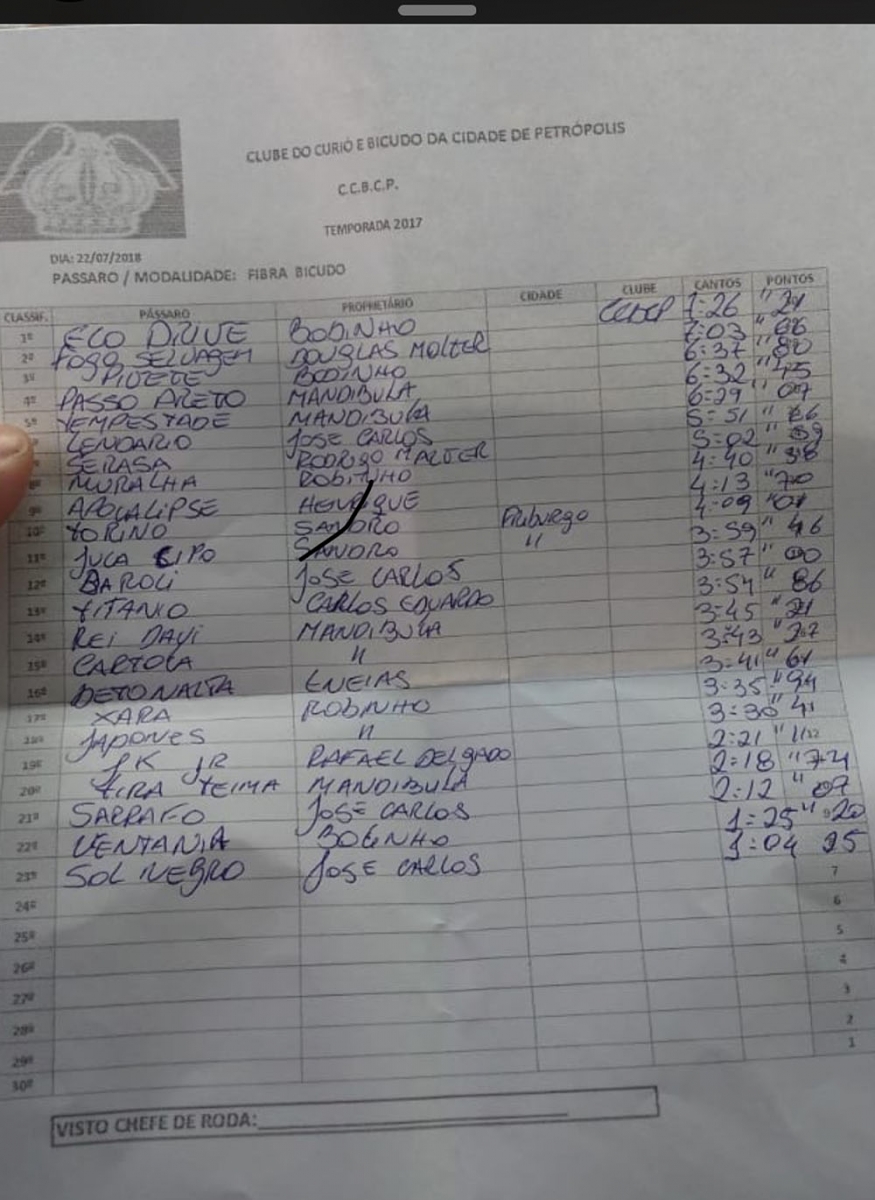 CLUBE DO CURIÓ E BICUDO DA CIDADE DE PETRÓPOLIS
C.C.B.C.P.
TEMPORADA 2017
DIA: 22/07/2018
PASSARO / MODALIDADE: FIBRA BICUDO
CLASSIF. PÁSSARO PROPRIETÁRIO CIDADE CLUBE CANTOS PONTOS
1º ECO DRIVE BOBINHO 7:26 "21
2º FOGO SELVAGEM DOUGLAS MOLTER 7:03 "68
3º PIVETE BOBINHO 6:37 "80
4º PASSO PRETO MANDIBULA 6:32 "45
5º TEMPESTADE MANDIBULA 6:29 "07
LENDARIO JOSE CARLOS 5:51 " 66
SERASA RODRIGO MALTER 5:02 " 59
8º MURALHA ROBINHO 4:40 "38
9º APOCALIPSE HENRIQUE 4:13 "70
10º TORINO SANDRO FRIBURGO 4:09 "01
11º JUCA CIPO SANDRO " 3:59 " 46
12º BAROLI JOSE CARLOS 3:57 " 00
13º TITANIO CARLOS EDUARDO 3:54 " 86
14º REI DAVI MANDIBULA 3:45 "21
15º CARTOLA " 3:43 "27
16º DETONALTA ENEIAS 3:41 " 61
17º XARA ROBINHO 3:35 "94
18º JAPONES " 3:30 " 41
19º JK JR RAFAEL DELGADO 2:21 "
20º TIRA TEIMA MANDIBULA 2:18 "74
21º SARRAFO JOSE CARLOS 2:12 " 07
22º VENTANIA BOBINHO 1:25 " 20
23º SOL NEGRO JOSE CARLOS 1:04 25
7
24º 6
25º 5
26º 4
27º 3
28º 2
29º 1
30º
VISTO CHEFE DE RODA: